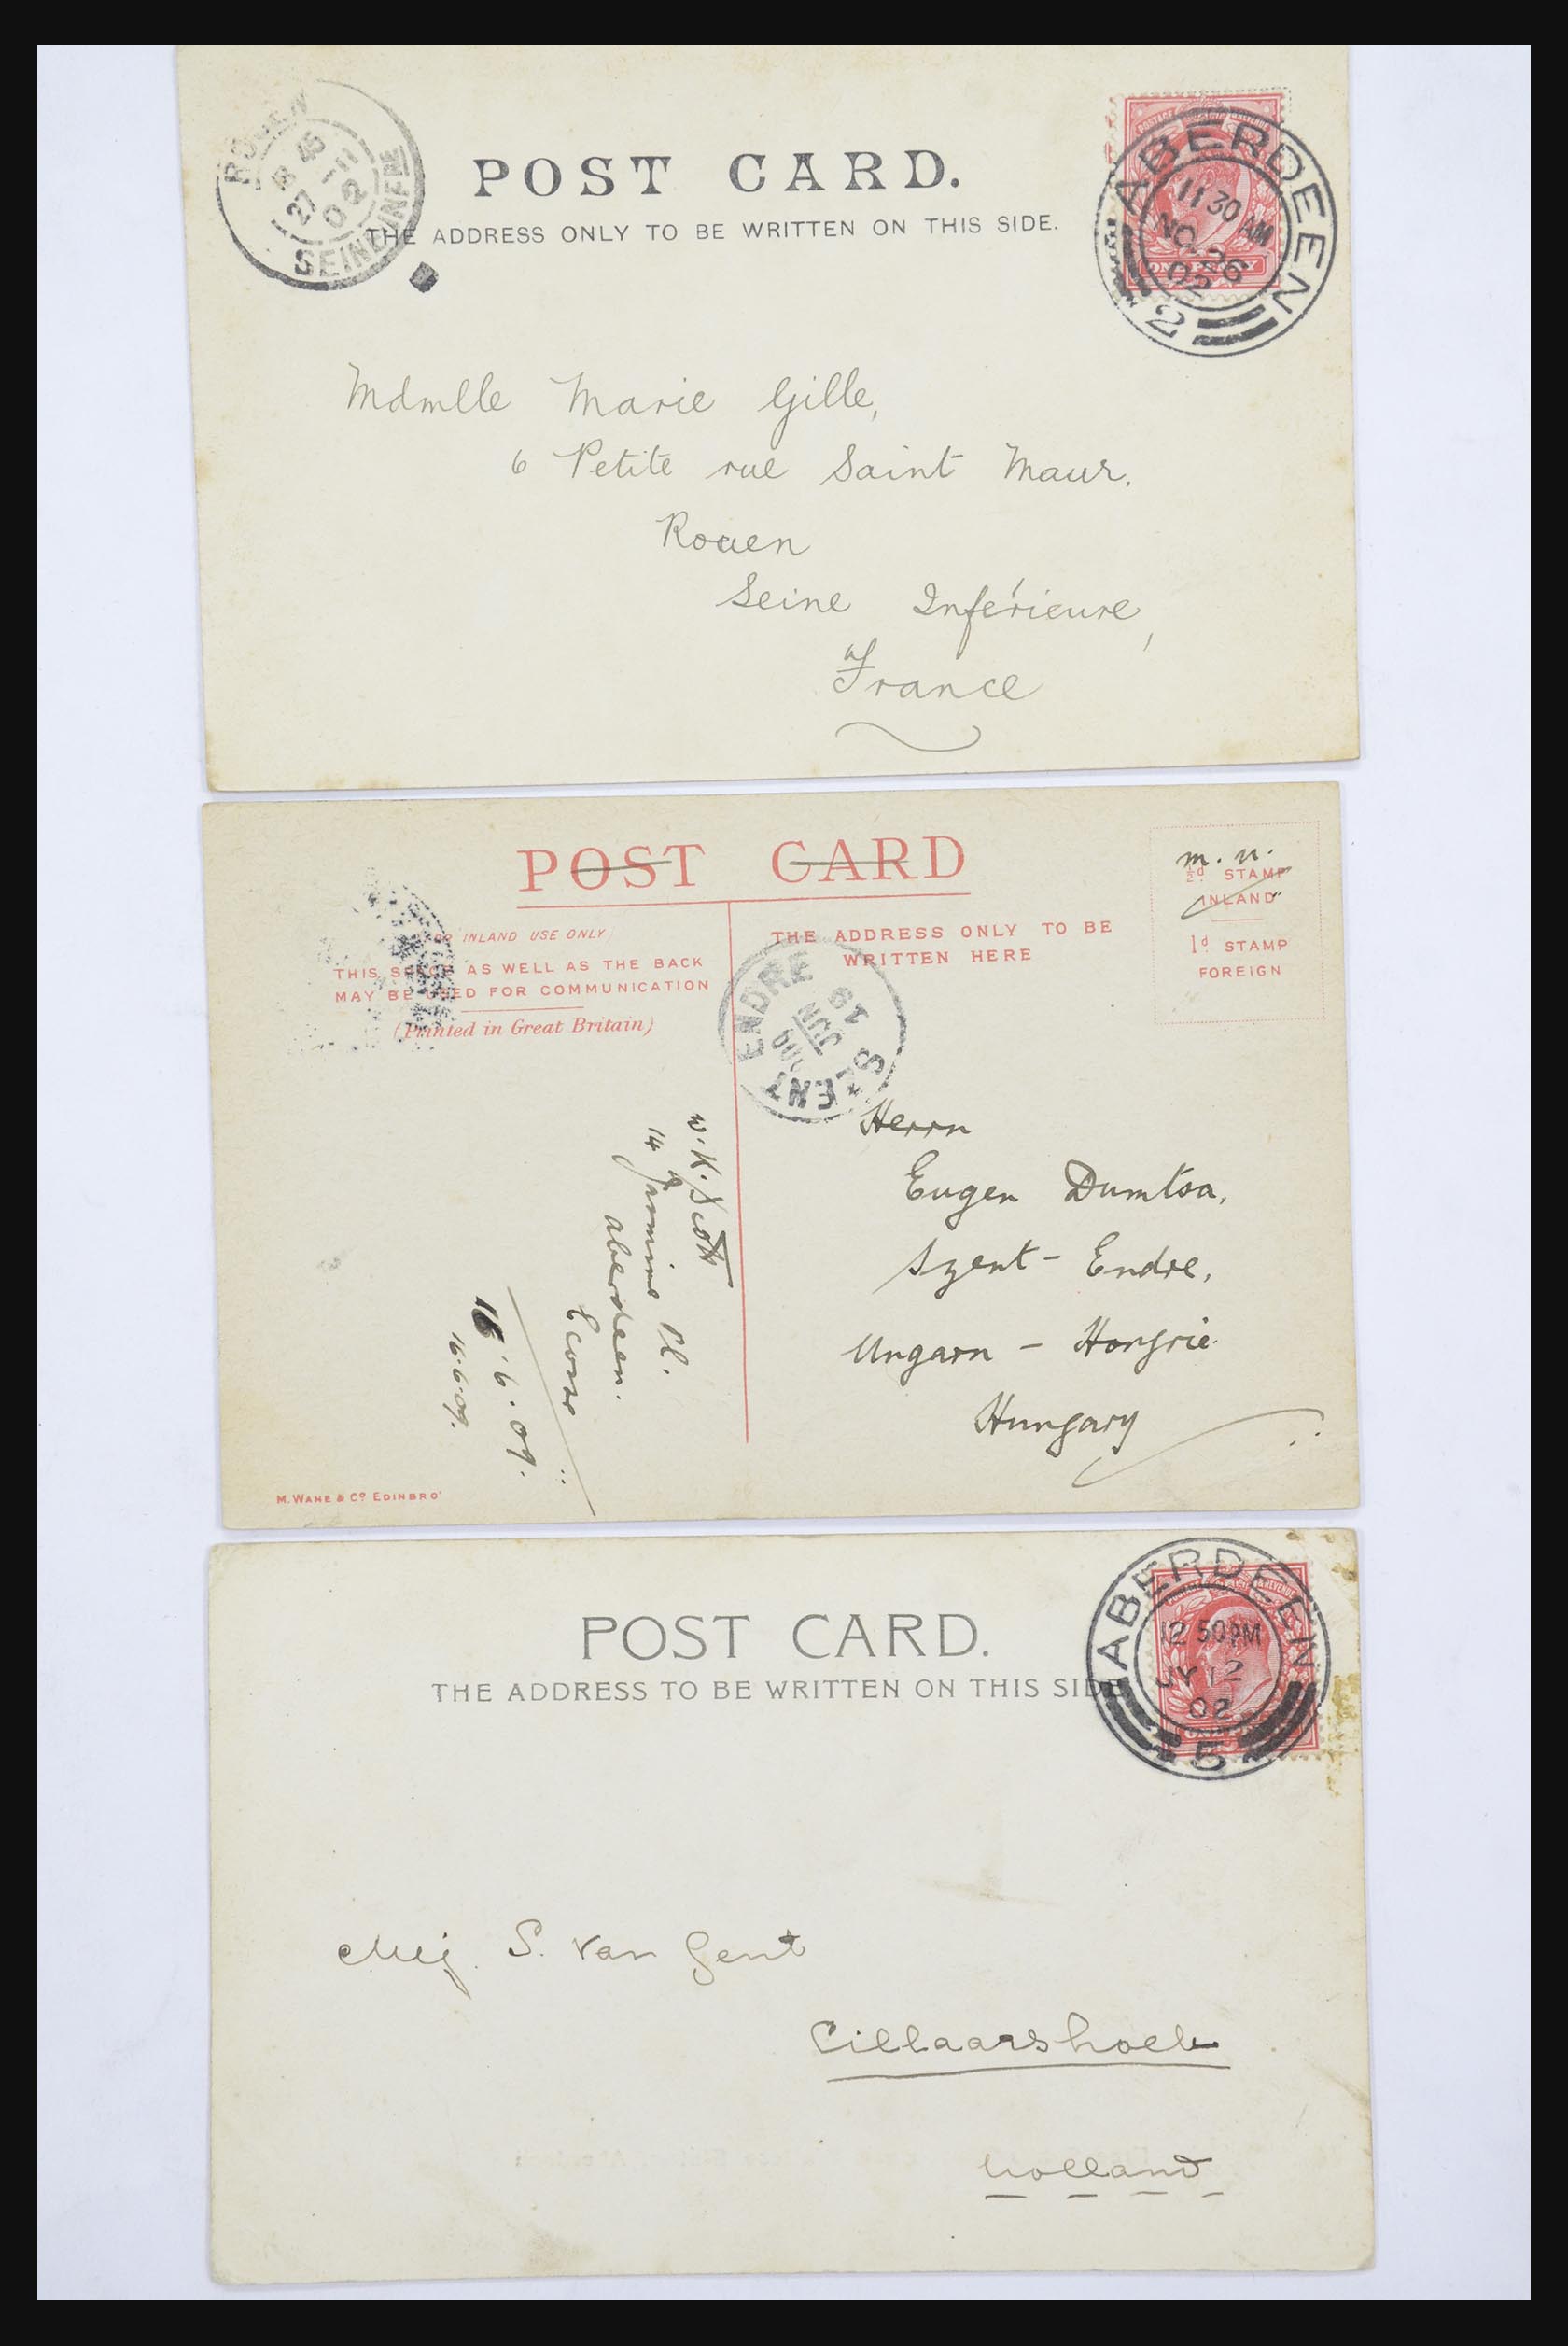 POST CARD.
THE ADDRESS ONLY TO BE WRITTEN ON THIS SIDE.
ROUEN
45
27 -11
02
SEINE INFRE
ABERDEEN
11 30 AM
NO 26
02
2
Mdmlle Marie Gille,
6 Petite rue Saint Maur.
Rouen
Seine Inférieure,
France
POST CARD
INLAND USE ONLY
THIS SPACE AS WELL AS THE BACK
MAY BE USED FOR COMMUNICATION
(Printed in Great Britain)
THE ADDRESS ONLY TO BE
WRITTEN HERE
m. n.
½d STAMP
INLAND
1d STAMP
FOREIGN
SZENT ENDRE
JUN
19
W. K. Scott
14 Jasmine Pl.
aberdeen.
Ecosse
16.6.09.
16.6.09.
Herrn
Eugen Dumtsa,
Szent-Endre,
Ungarn - Hongrie.
Hungary
M. WANE & Co EDINBRO'
POST CARD.
THE ADDRESS TO BE WRITTEN ON THIS SIDE
ABERDEEN
12 50 PM
JY 12
02
5
Mej. S. van Gent
Cillaarshoek
Holland